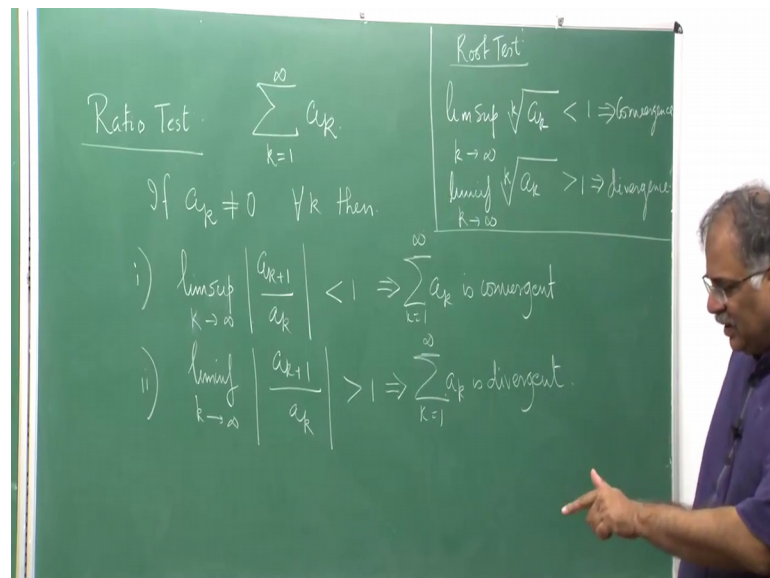 Ratio Test. ∑_{k=1}^{∞} a_k.
If a_k ≠ 0 ∀k then.
i) limsup_{k→∞} |a_{k+1}/a_k| < 1 ⇒ ∑_{k=1}^{∞} a_k is convergent
ii) liminf_{k→∞} |a_{k+1}/a_k| > 1 ⇒ ∑_{k=1}^{∞} a_k is divergent.
Root Test
limsup_{k→∞} ᵏ√a_k < 1 ⇒ Convergence
liminf_{k→∞} ᵏ√a_k > 1 ⇒ divergence